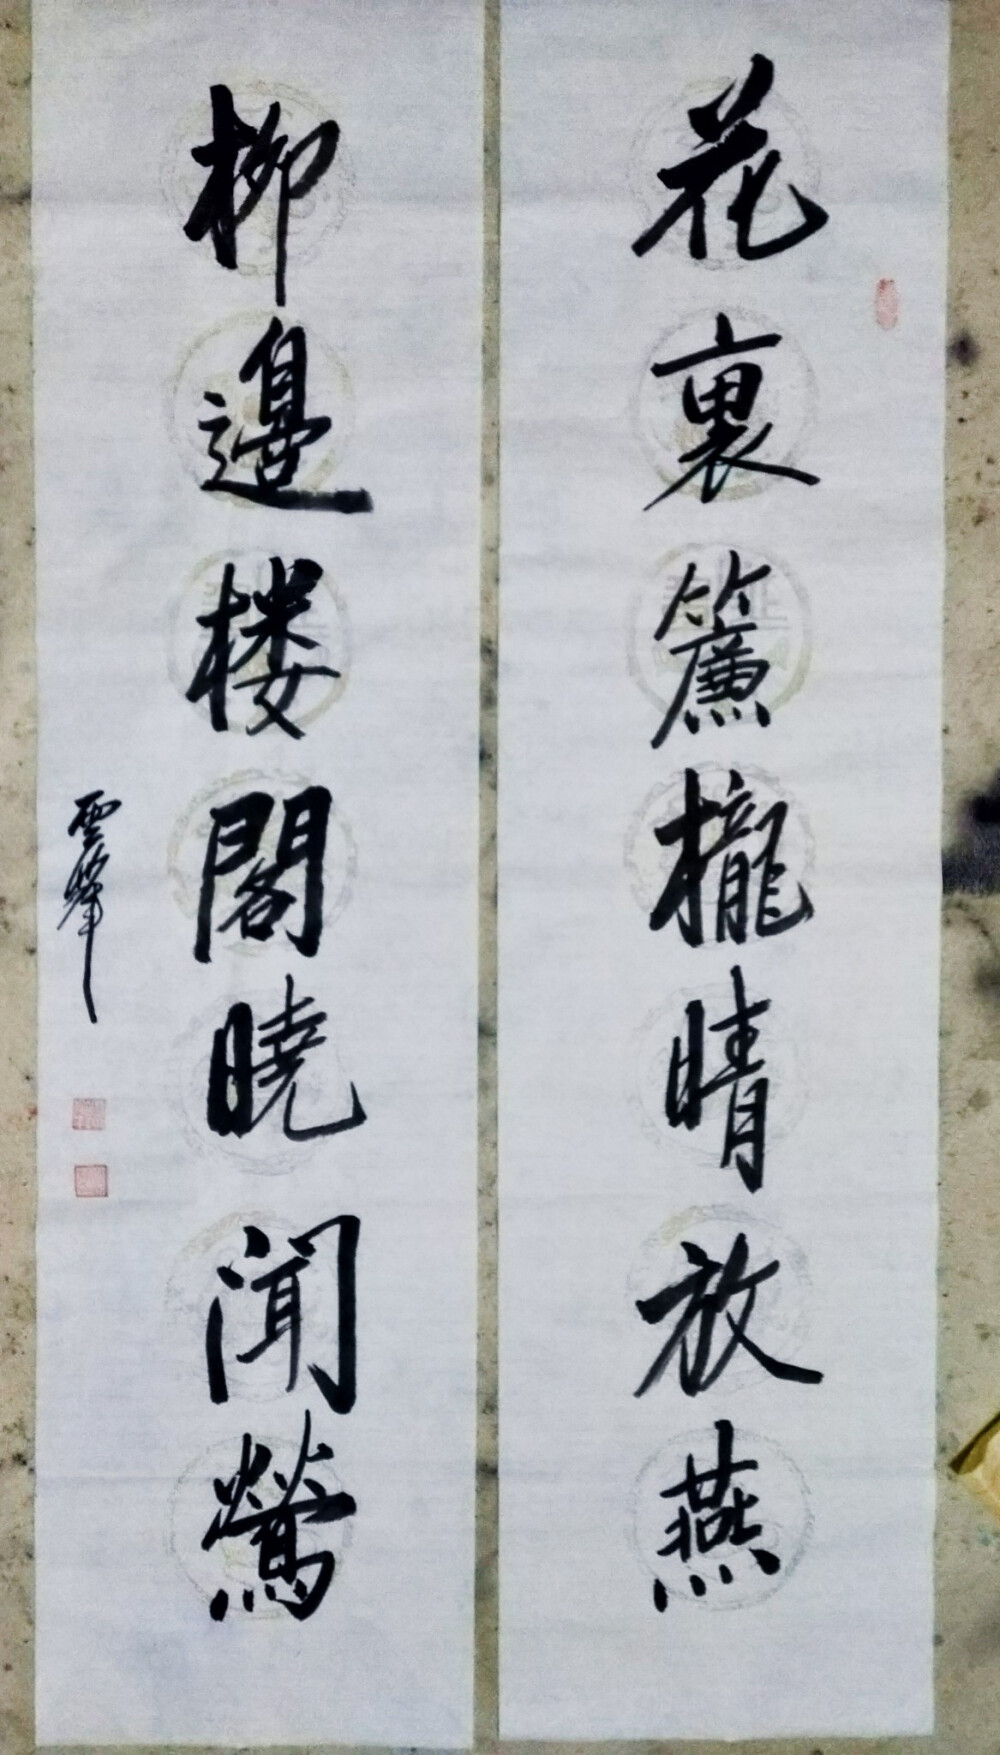 花裏簾櫳晴放燕
柳邊楼閣曉聞鶯
雲峰